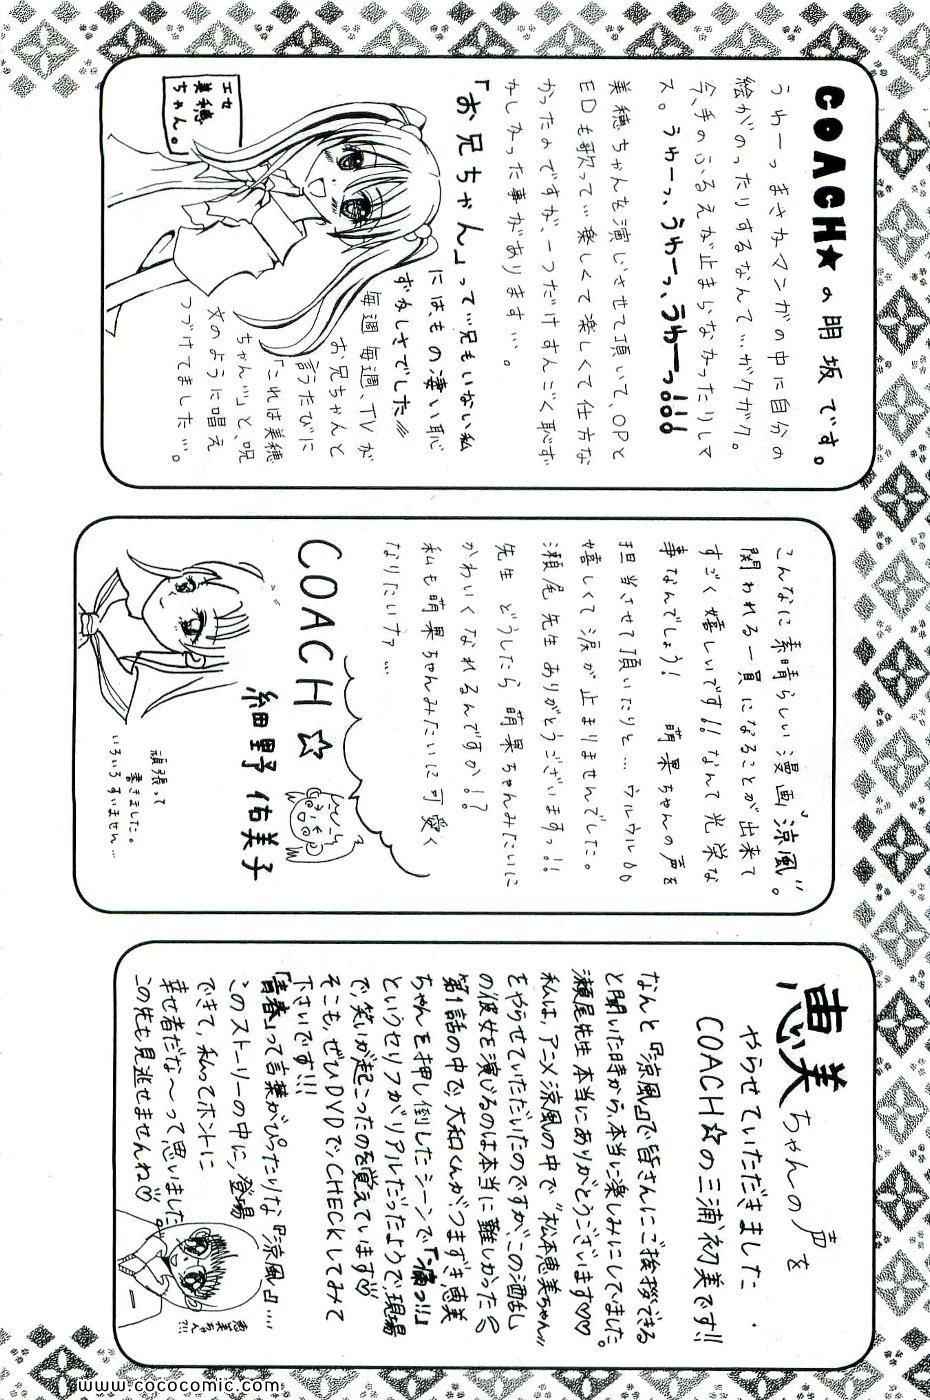 COACH★の明坂です。
うわーっまさかマンガの中に自分の
絵がのったりするなんて…ガクガク。
今、手のふるえが止まらなかったりしま
ス。うわーっ、うわーっ、うわーっ!!!
美穂ちゃんを演じさせて頂いて、OPと
EDも歌って…楽しくて楽しくて仕方な
かったのですが、一つだけすんごく恥ず
かしかった事があります…。
「お兄ちゃん」って…兄もいない私
にはもの凄い恥
ずかしさでした
毎週毎週、TVが
お兄ちゃんと
言うたびに
「これは美穂
ちゃん…」と、呪
文のように唱え
つづけてました…。
エセ
美穂
ちゃん。
こんなに素晴らしい漫画“涼風”。
関われる一員になることが出来て
すごく嬉しいです!!なんて光栄な
事なんでしょう! 萌果ちゃんの声を
担当させて頂いたりと…ウルウル
嬉しくて涙が止まりませんでした。
瀬尾先生ありがとうございますっ!!
先生 どうしたら 萌果ちゃんみたいに
かわいくなれるんですか!?
私も萌果ちゃんみたいに可愛く
なりたいナァ…
COACH☆
細野佑美子
頑張って
書きました。
いろいろすいません…
恵美ちゃんの声を
やらせていただきました
COACH☆の三浦初美です!!
なんと『涼風』で皆さんにご挨拶できる
と聞いた時から、本当に楽しみにしてました。
瀬尾先生本当にありがとうございます♡♡
私は、アニメ涼風の中で“松本恵美ちゃん”
をやらせていただいたのですが、この酒乱
の彼女を演じるのは本当に難しかった
第1話の中で、大和くんがつまずき恵美
ちゃんを押し倒したシーンで「痛っ!!」
というセリフがリアルだったようで、現場
で、笑いが起こったのを覚えています♡
そこも、ぜひDVDで、CHECKしてみて
下さいです!!!
「青春」って言葉がぴったりな『涼風』…
このストーリーの中に、登場
できて、私ってホントに
幸せ者だな〜って思いました
この先も見逃せませんね♡
恵美ちゃん?!!
www.cococomic.com